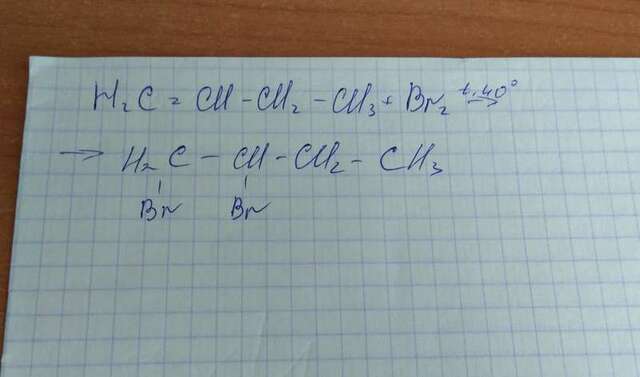 H₂C = CH - CH₂ - CH₃ + Br₂ t, 40° →
→ H₂C - CH - CH₂ - CH₃
Br Br